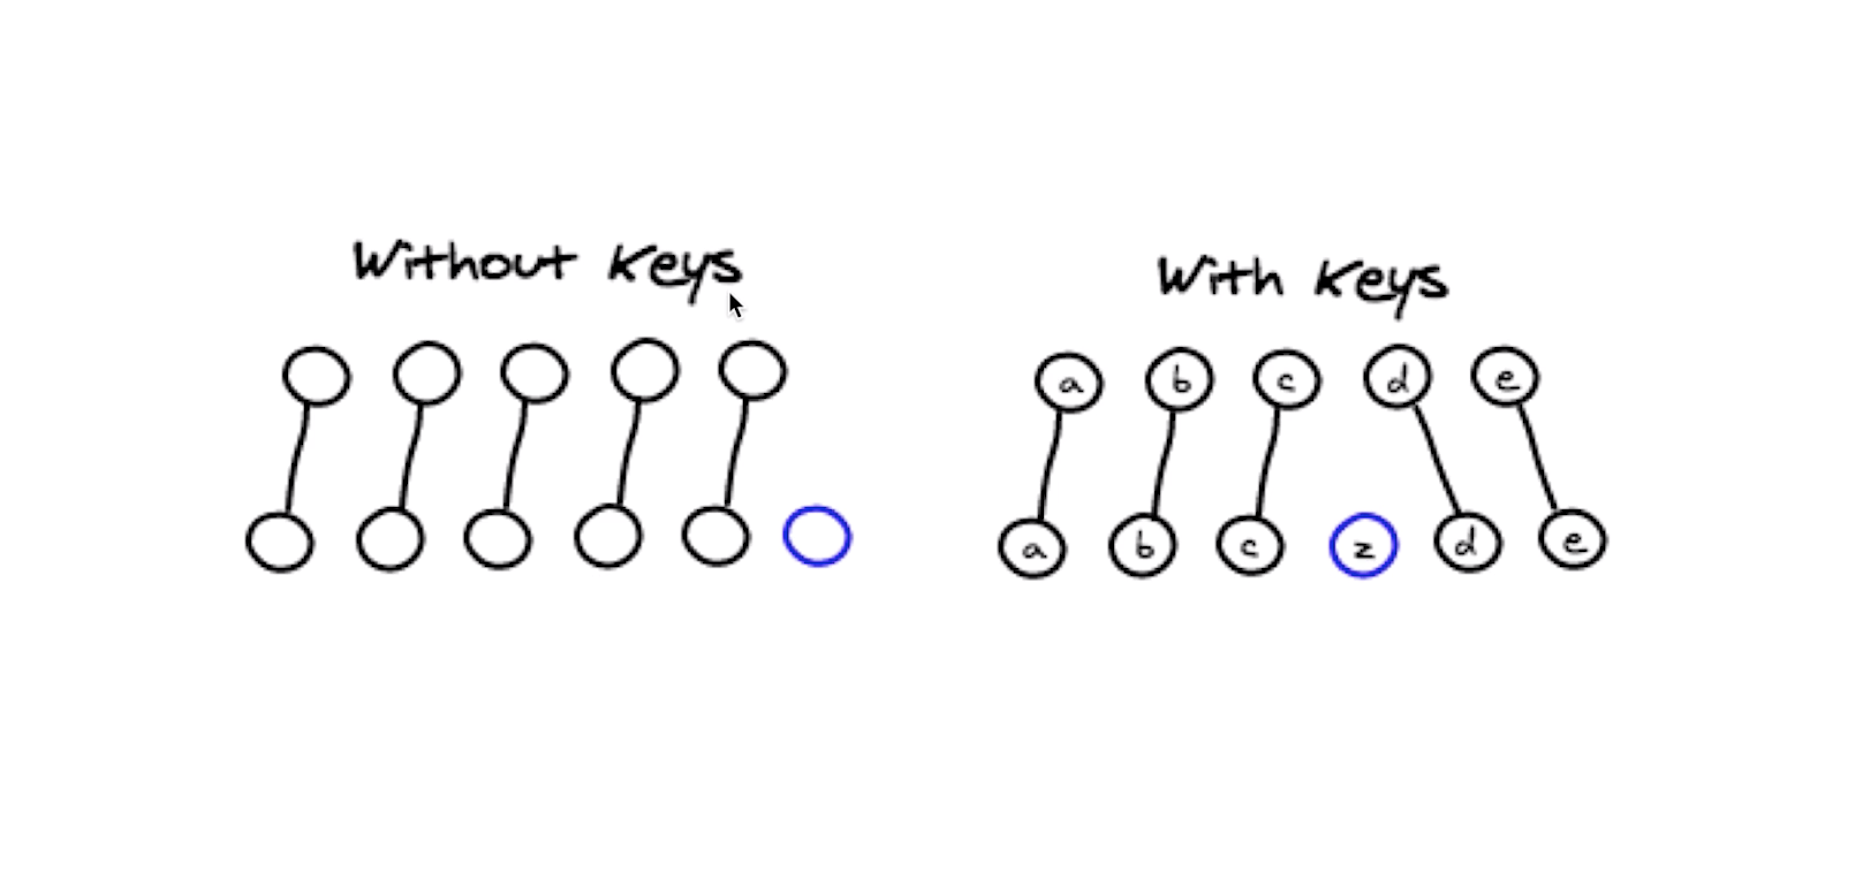 Without Keys
With Keys
a b c d e
a b c z d e